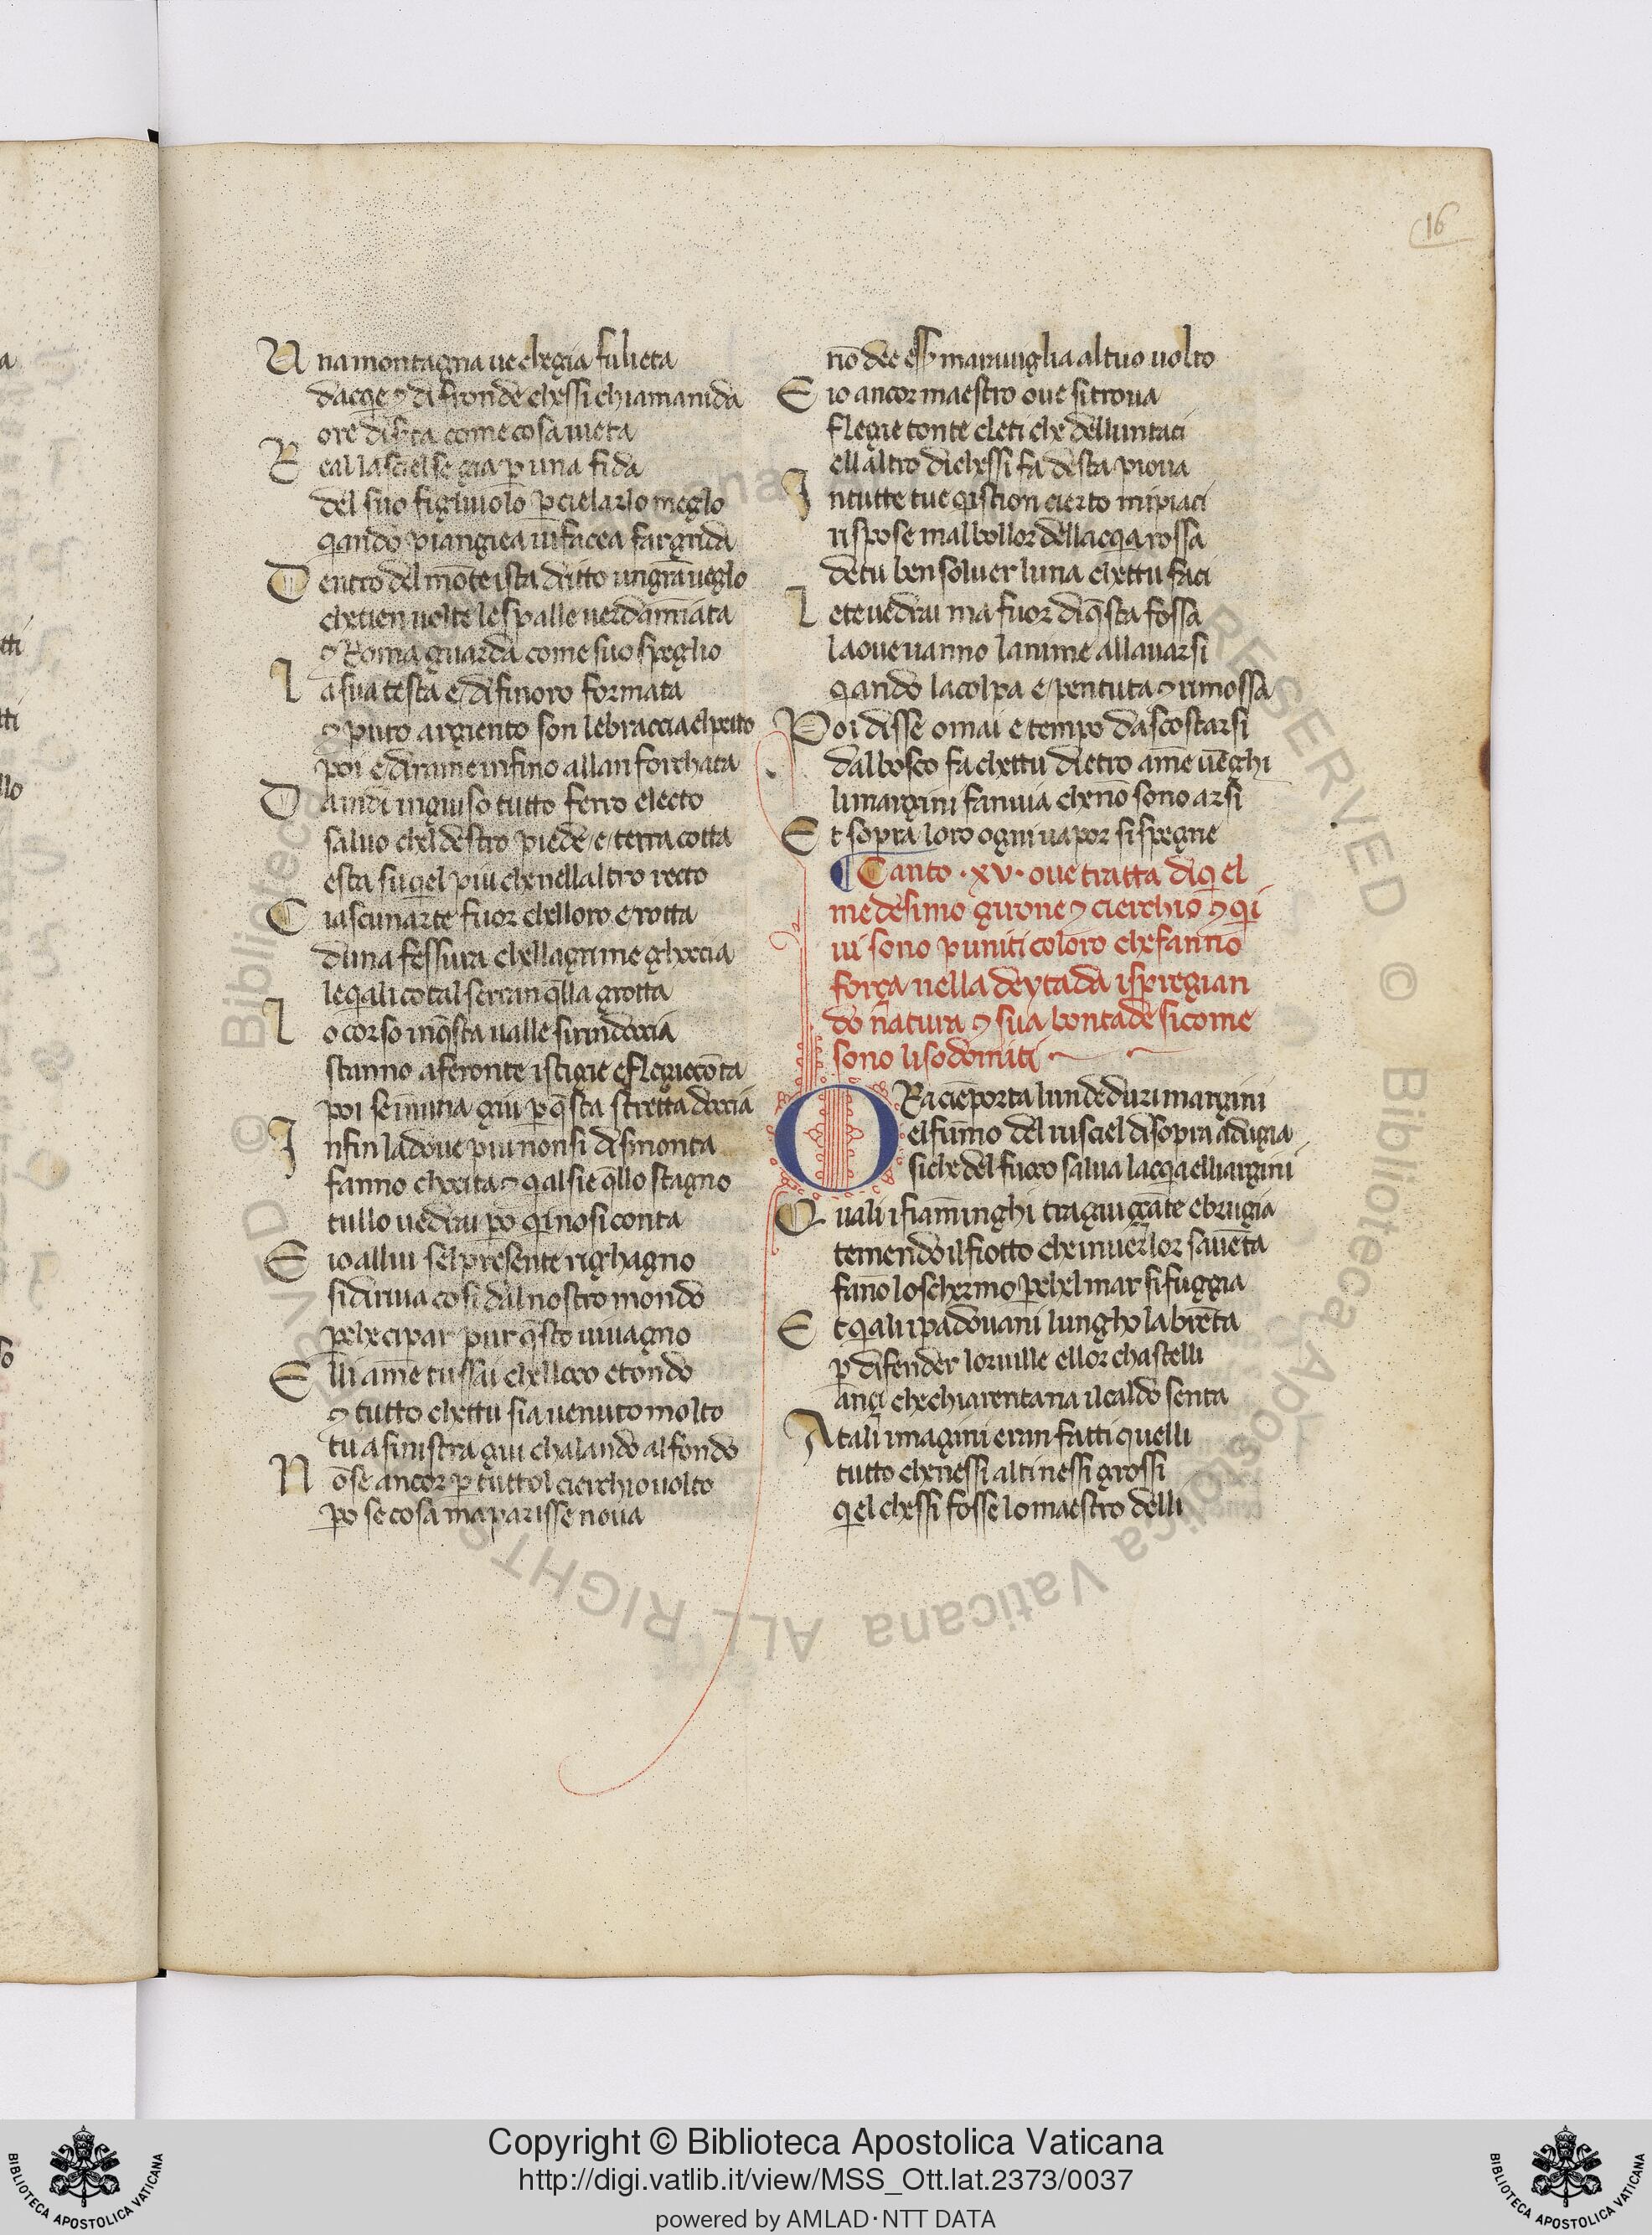 16
U na montagna ve chegia fu lieta
dacq̄e ⁊ di fronde chessi chiamanida
ore diſta come cosa vieta
R ea llasciel se gia ꝑ una fida
del suo figliuolo ꝑ cielarlo meglo
qando piangiea vifacea far grida
D entro del mōte ista dritto un grā veglo
chetien volte le spalle ver damiata
⁊ Roma guarda come suo speglio
L a sua testa e / difinoro formata
⁊ puro argiento son le braccia elpecto
poi e dirame infino alla n forchata
D a indi in guiso tutto ferro electo
salvo cheldestro piede / e / terra cotta
esta suqel piu chenellaltro recto
C iascunarte fuor chelloro e rotta
duna fessura chellagrime ghoccia
leqali cotal feran q̄lla grotta
L o corso inq̄sta valle sirindoccia
stanno aferonte istigie eflegiecōta
poi senūna giu ꝑ q̄sta stretta doccia
I nfin ladove piu non si dismonta
fanno chocita ⁊ qalsie q̄llo stagno
tullo vedrai ꝑo qi nosi conta
E io allui sel presente righagno
sidiriva cosi dal nostro mondo
ꝑche cipar pur q̄sto vivagno
E lli ame tu ssai chelloco etondo
⁊ tutto chettu sia venuto molto
tu a sinistra giu chalando al fondo
N ō se ancor ꝑ tuttol cierchio volto
ꝑo se cosa maparisse nova
nō dee eſſ maraviglia al tuo volto
E io ancor maestro ove si trova
flegie tonte eleti che dellun taci
ellaltro dichessi fa desta piova
I n tutte tue qistion cierto mi piaci
rispose mal bollor dellacqa rossa
dētu ben solver luna chettu faci
L ete vedrai ma fuor diq̄sta fossa
la ove vanno lanime allavarsi
qando la colpa e / pentuta ⁊ rimossa
P oi disse omai e tempo da scostarsi
dal bosco fa chettu dietro ame vēghi
li margini fan via chenō sono arsi
E t sopra loro ogni vapor si spegne
Canto · xv · ove tratta diqel
medesimo girone ⁊ cierchio ⁊ qi
vi sono puniti coloro che fanno
força nella deytada ispregian
do natura ⁊ sua bontade sicome
sono li sodomiti ·
O Ra ciēporta lun deduri margini
el fumo del ruscel disopra aduga
si che del fuoco salva lacqa elliargini
Q uali i fiaminghi tra guiçāte ebrugia
temendo il fiotto cheinver lor savēta
fanō loschermo ꝑchel mar si fuggia
E t qali i padovani lungho la brēta
ꝑ difender lor ville ellor chastelli
ançi che chiarentana il caldo senta
A tali imagini eran fatti quelli
tutto chenessi alti nessi grossi
qel chessi fosse lo maestro delli
Copyright © Biblioteca Apostolica Vaticana
http://digi.vatlib.it/view/MSS_Ott.lat.2373/0037
powered by AMLAD·NTT DATA
BIBLIOTECA APOSTOLICA VATICANA
BIBLIOTECA APOSTOLICA VATICANA